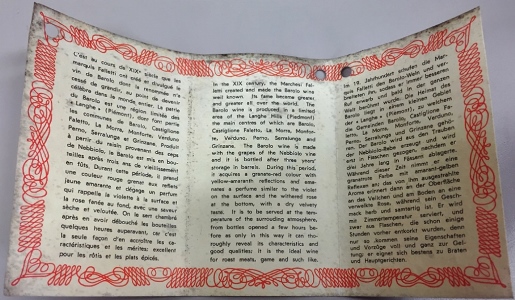 C'est au cours du XIXe siècle que les
marquis Falletti ont créé et divulgué le
vin de Barolo dont la renommée n'a
cessé de grandir, au point de devenir
célèbre dans le monde entier. La patrie
du Barolo est une région limitée des
« Langhe » (Piémont), dont font partie
les communes de Barolo, Castiglione
Falletto, La Morra, Monforte, Verduno
Perno, Serralunga et Grinzane. Produit
à partir du raisin provenant des ceps
de Nebbiolo, le Barolo est mis en bou-
teilles après trois ans de vieillissement
en fûts. Durant cette période, il prend
une couleur rouge grenat aux reflets
jaune amarante et dégage un parfum
qui rappelle la violette à la surface et
la rose fanée au fond, avec une saveur
sèche et veloutée. On le sert chambré
après en avoir débouché les bouteilles
quelques heures auparavant, car c'est
la seule façon d'en accroître les ca-
ractéristiques et les mérites: excellent
pour les rôtis et les plats épicés.
In the XIX century, the Marchesi Fal-
letti created and made the Barolo wine
well known. Its fame become greater
and greater all over the world. The
Barolo wine is produced in a limited
area of the Langhe Hills (Piedmont)
the main centres of which are Barolo,
Castiglione Faletto, La Morra, Monfor-
te, Verduno, Perno, Serralunga and
Grinzane. The Barolo wine is made
with the grapes of the Nebbiolo vine
and it is bottled after three years'
storage in barrels. During this period,
it acquires a granate-red colour with
yellow-amaranth reflections and ema-
nates a perfume similar to the violet
on the surface and the withered rose
at the bottom, with a dry velvety
taste. It is to be served at the tem-
perature of the surrounding atmosphere,
from bottles opened a few hours be-
fore as only in this way it can tho-
roughly reveal its characteristics and
good qualities: it is the ideal wine
for roast meats, game and such like.
Im 19. Jahrhundert schufen die Mar-
quis Falletti den Barolo-Wein und ver-
breiteten ihn, sodass er immer besseren
Ruf erwarb und bald in der ganzen
Welt berühmt wurde. In der Gegend
der « Langhe » (Piemont), zu welchem
Perno, Serralunga und Grinzane gehö-
ren. Der Barolo wird aus den Trauben
der Nebbiolo-Rebe erzeugt und wird
erst in Flaschen gezogen, nachdem er
drei Jahre lang in Fässern ablagerte.
Während dieser Zeit nimmt er eine
granatrote Farbe mit amarant-gelben
Reflexen an; das von ihm ausgestrahlte
Aroma erinnert dann an der Oberfläche
an das Veilchen und am Boden an eine
verwelkte Rose, während sein Gesch-
mack herb und samtartig ist. Er wird
mit Zimmertemperatur serviert, und
zwar aus Flaschen, die schon einige
Stunden vorher entkorkt wurden, denn
nur so kommen seine Eigenschaften
und Vorzüge voll und ganz zur Gel-
tung: er eignet sich bestens zu Braten
und Hauptgerichten.